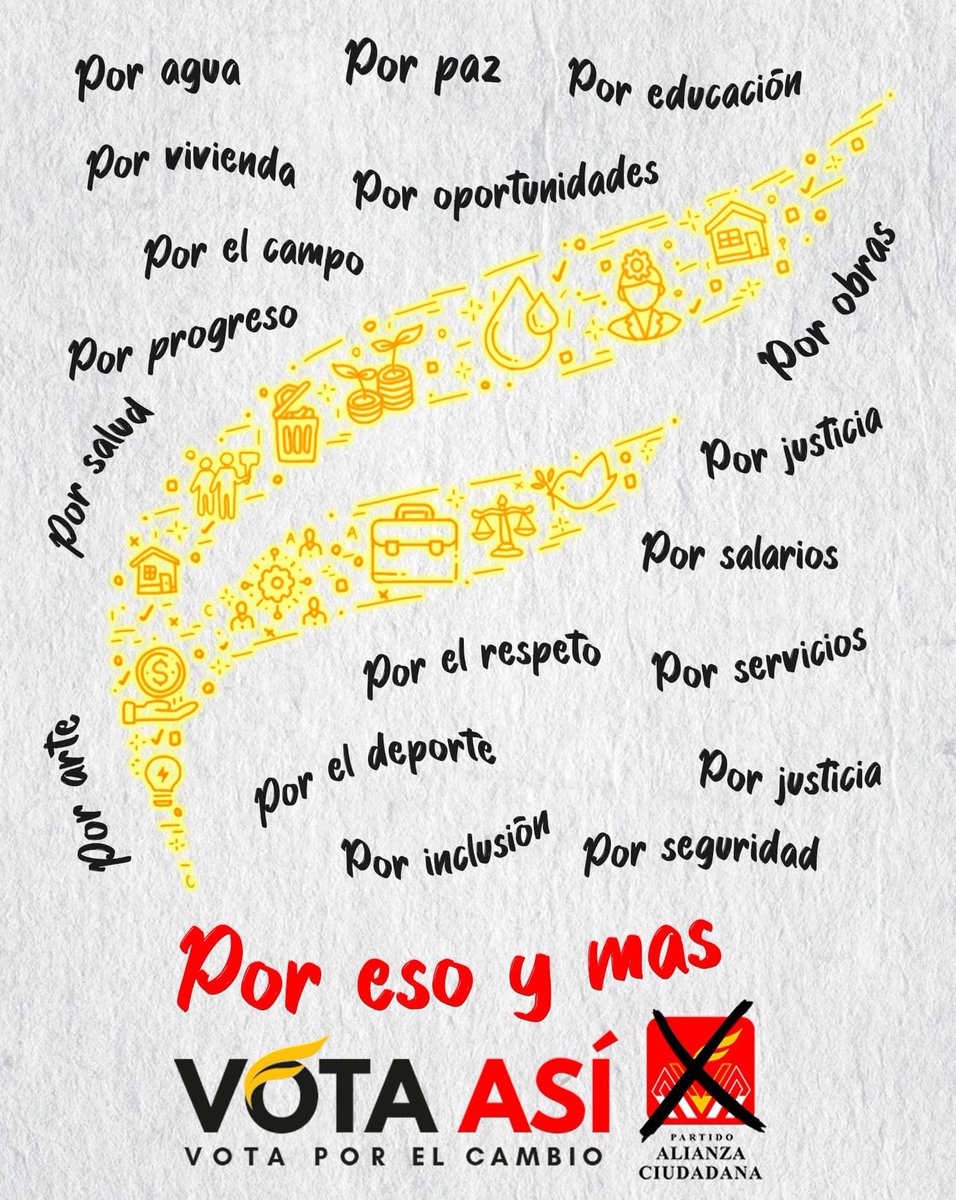 Por agua
Por paz
Por educación
Por vivienda
Por oportunidades
Por el campo
Por obras
Por progreso
Por salud
Por justicia
Por salarios
Por el respeto
Por servicios
Por arte
Por el deporte
Por justicia
Por inclusión
Por seguridad
Por eso y mas
VOTA ASÍ
VOTA POR EL CAMBIO
PARTIDO
ALIANZA
CIUDADANA